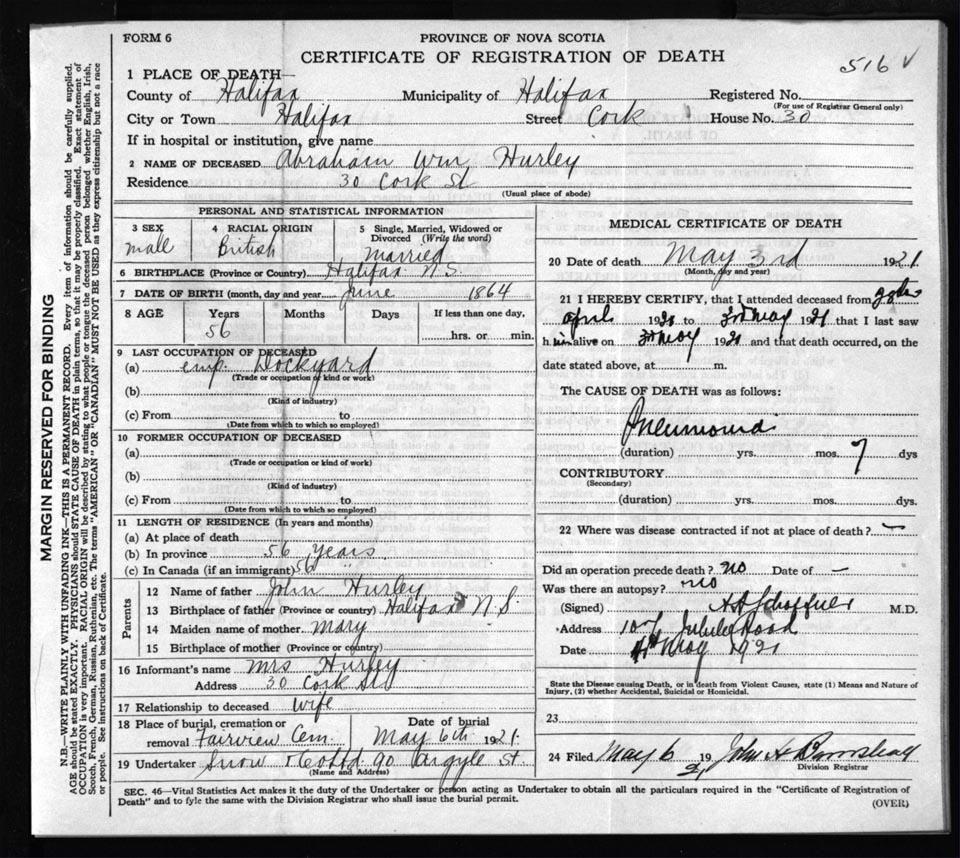 FORM 6
PROVINCE OF NOVA SCOTIA
CERTIFICATE OF REGISTRATION OF DEATH
516 √
1 PLACE OF DEATH—
County of Halifax Municipality of Halifax Registered No.
(For use of Registrar General only)
City or Town Halifax Street Cork House No. 30
If in hospital or institution, give name
2 NAME OF DECEASED Abraham Wm Hurley
Residence 30 Cork St
(Usual place of abode)
PERSONAL AND STATISTICAL INFORMATION
3 SEX 4 RACIAL ORIGIN 5 Single, Married, Widowed or
Divorced (Write the word)
male British married
6 BIRTHPLACE (Province or Country) Halifax N.S.
7 DATE OF BIRTH (month, day and year June 1864
8 AGE Years Months Days If less than one day,
56 hrs. or min.
9 LAST OCCUPATION OF DECEASED
(a) emp. Dockyard
(Trade or occupation or kind of work)
(b)
(Kind of industry)
(c) From to
(Date from which to which so employed)
10 FORMER OCCUPATION OF DECEASED
(a)
(Trade or occupation or kind of work)
(b)
(Kind of industry)
(c) From to
(Date from which to which so employed)
11 LENGTH OF RESIDENCE (In years and months)
(a) At place of death
(b) In province 56 Years
(c) In Canada (if an immigrant) 56
Parents
12 Name of father John Hurley
13 Birthplace of father (Province or country) Halifax N.S.
14 Maiden name of mother Mary
15 Birthplace of mother (Province or country)
16 Informant's name Mrs Hurley
Address 30 Cork St
17 Relationship to deceased Wife
18 Place of burial, cremation or Date of burial
removal Fairview Cem. May 6th 1921.
19 Undertaker Snow & Co Ltd 90 Argyle St.
(Name and Address)
MEDICAL CERTIFICATE OF DEATH
20 Date of death May 3rd 1921
(Month, day and year)
21 I HEREBY CERTIFY, that I attended deceased from
april 1921 to 3rd May 1921 that I last saw
him alive on 3rd May 1921 and that death occurred, on the
date stated above, at m.
The CAUSE OF DEATH was as follows:
Pneumonia
(duration) yrs. mos. 7 dys
CONTRIBUTORY
(Secondary)
(duration) yrs. mos. dys.
22 Where was disease contracted if not at place of death? —
Did an operation precede death? no Date of —
Was there an autopsy? no
(Signed) M.D.
Address 107 Jubilee Road
Date 4th May 1921
State the Disease causing Death, or in death from Violent Causes, state (1) Means and Nature of
Injury, (2) whether Accidental, Suicidal or Homicidal.
23
24 Filed May 6 1921 John A
Division Registrar
SEC. 46—Vital Statistics Act makes it the duty of the Undertaker or person acting as Undertaker to obtain all the particulars required in the "Certificate of Registration of
Death" and to fyle the same with the Division Registrar who shall issue the burial permit.
(OVER)
MARGIN RESERVED FOR BINDING
N.B.—WRITE PLAINLY WITH UNFADING INK—THIS IS A PERMANENT RECORD. Every item of information should be carefully supplied.
AGE should be stated EXACTLY. PHYSICIANS should STATE CAUSE OF DEATH in plain terms, so that it may be properly classified. Exact statement of
OCCUPATION is very important. RACIAL ORIGIN will be described by stating to what people or tongue the deceased person belonged, whether English, Irish,
Scotch, French, German, Russian, Ruthenian, etc. The terms "AMERICAN" OR "CANADIAN" MUST NOT BE USED as they express citizenship but not a race
or people. See instructions on back of Certificate.